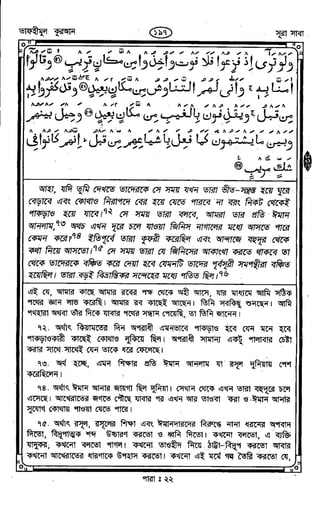 তাফহীমুল কুরআন
১৯৭
সূরা সাবা
وَلَوْ تَرَىٰٓ إِذْ فَزِعُوا فَلَا فَوْتَ وَأُخِذُوا مِن مَّكَانٍ قَرِيبٍ ۝ وَقَالُوٓا
اٰمَنَّا بِهٖ ۚ وَأَنّٰى لَهُمُ التَّنَاوُشُ مِن مَّكَانٍ بَعِيدٍ ۝ وَقَدْ كَفَرُوا بِهٖ
مِن قَبْلُ ۚ وَيَقْذِفُونَ بِالْغَيْبِ مِن مَّكَانٍ بَعِيدٍ ۝ وَحِيلَ بَيْنَهُمْ
وَبَيْنَ مَا يَشْتَهُونَ كَمَا فُعِلَ بِأَشْيَاعِهِم مِّن قَبْلُ ۚ إِنَّهُمْ كَانُوا فِي
شَكٍّ مُّرِيبٍ ۝
আহা, যদি তুমি দেখতে তাদেরকে সে সময় যখন তারা ভীত-সন্ত্রস্ত হয়ে ঘুরে
বেড়াবে এবং কোথাও নিরাপদে বের হয়ে যেতে পারবে না বরং নিকট থেকেই
পাকড়াও হয়ে যাবে।৭২ সে সময় তারা বলবে, আমরা তার প্রতি ঈমান
আনলাম,৭৩ অথচ এখন দূরে চলে যাওয়া জিনিস নাগালের মধ্যে আসতে পারে
কেমন করে?৭৪ ইতিপূর্বে তারা কুফরী করেছিল এবং আন্দাজে বহুদূর থেকে
কথা নিয়ে আসতো।৭৫ সে সময় তারা যে জিনিসের আকাংখা করতে থাকবে তা
থেকে তাদেরকে বঞ্চিত করে দেয়া হবে যেমনটি তাদের পূর্বসূরী সমপন্থীরা বঞ্চিত
হয়েছিল। তারা বড়ই বিভ্রান্তিকর সন্দেহের মধ্যে পতিত ছিল।৭৬
এই যে, আমার কাছে আমার রবের পক্ষ থেকে অহী আসে, যার মাধ্যমে আমি সঠিক
পথের জ্ঞান লাভ করেছি। আমার রব কাছেই আছেন। তিনি সবকিছু শুনছেন। আমি
পথহারা অথবা তাঁর দিকে যাবার পথের সন্ধান পেয়েছি, তা তিনি জানেন।
৭২. অর্থাৎ কিয়ামতের দিন অপরাধী এমনভাবে পাকড়াও হবে যেন মনে হবে
পাকড়াওকারী কাছেই কোথাও লুকিয়ে ছিল। অপরাধী সামান্য একটু পালাবার চেষ্টা
করার সাথে সাথেই যেন তাকে ধরে ফেলেছে।
৭৩. অর্থ হচ্ছে, এমন শিক্ষার প্রতি ঈমান আনলাম যা রসূল দুনিয়ায় পেশ
করেছিলেন।
৭৪. অর্থাৎ ঈমান আনার জায়গা ছিল দুনিয়া। সেখান থেকে এখন তারা বহুদূরে চলে
এসেছে। আখেরাতের জগতে পৌঁছে যাবার পর এখন আর তাওবা করা ও ঈমান আনার
সুযোগ কোথায় পাওয়া যেতে পারে।
৭৫. অর্থাৎ রসূল, রসূলের শিক্ষা এবং ঈমানদারদের বিরুদ্ধে নানা ধরনের অপবাদ
দিতো, বিদ্রূপাত্মক শব্দ উচ্চারণ করতো ও ধ্বনি দিতো। কখনো বলতো, এ ব্যক্তি
যাদুকর, কখনো বলতো পাগল। কখনো তাওহীদ নিয়ে ঠাট্টা-বিদ্রূপ করতো আবার
কখনো আখেরাতের ধারণাকে উপহাস করতো। কখনো এই মর্মে গল্প তৈরি করতো যে,
পারা : ২২